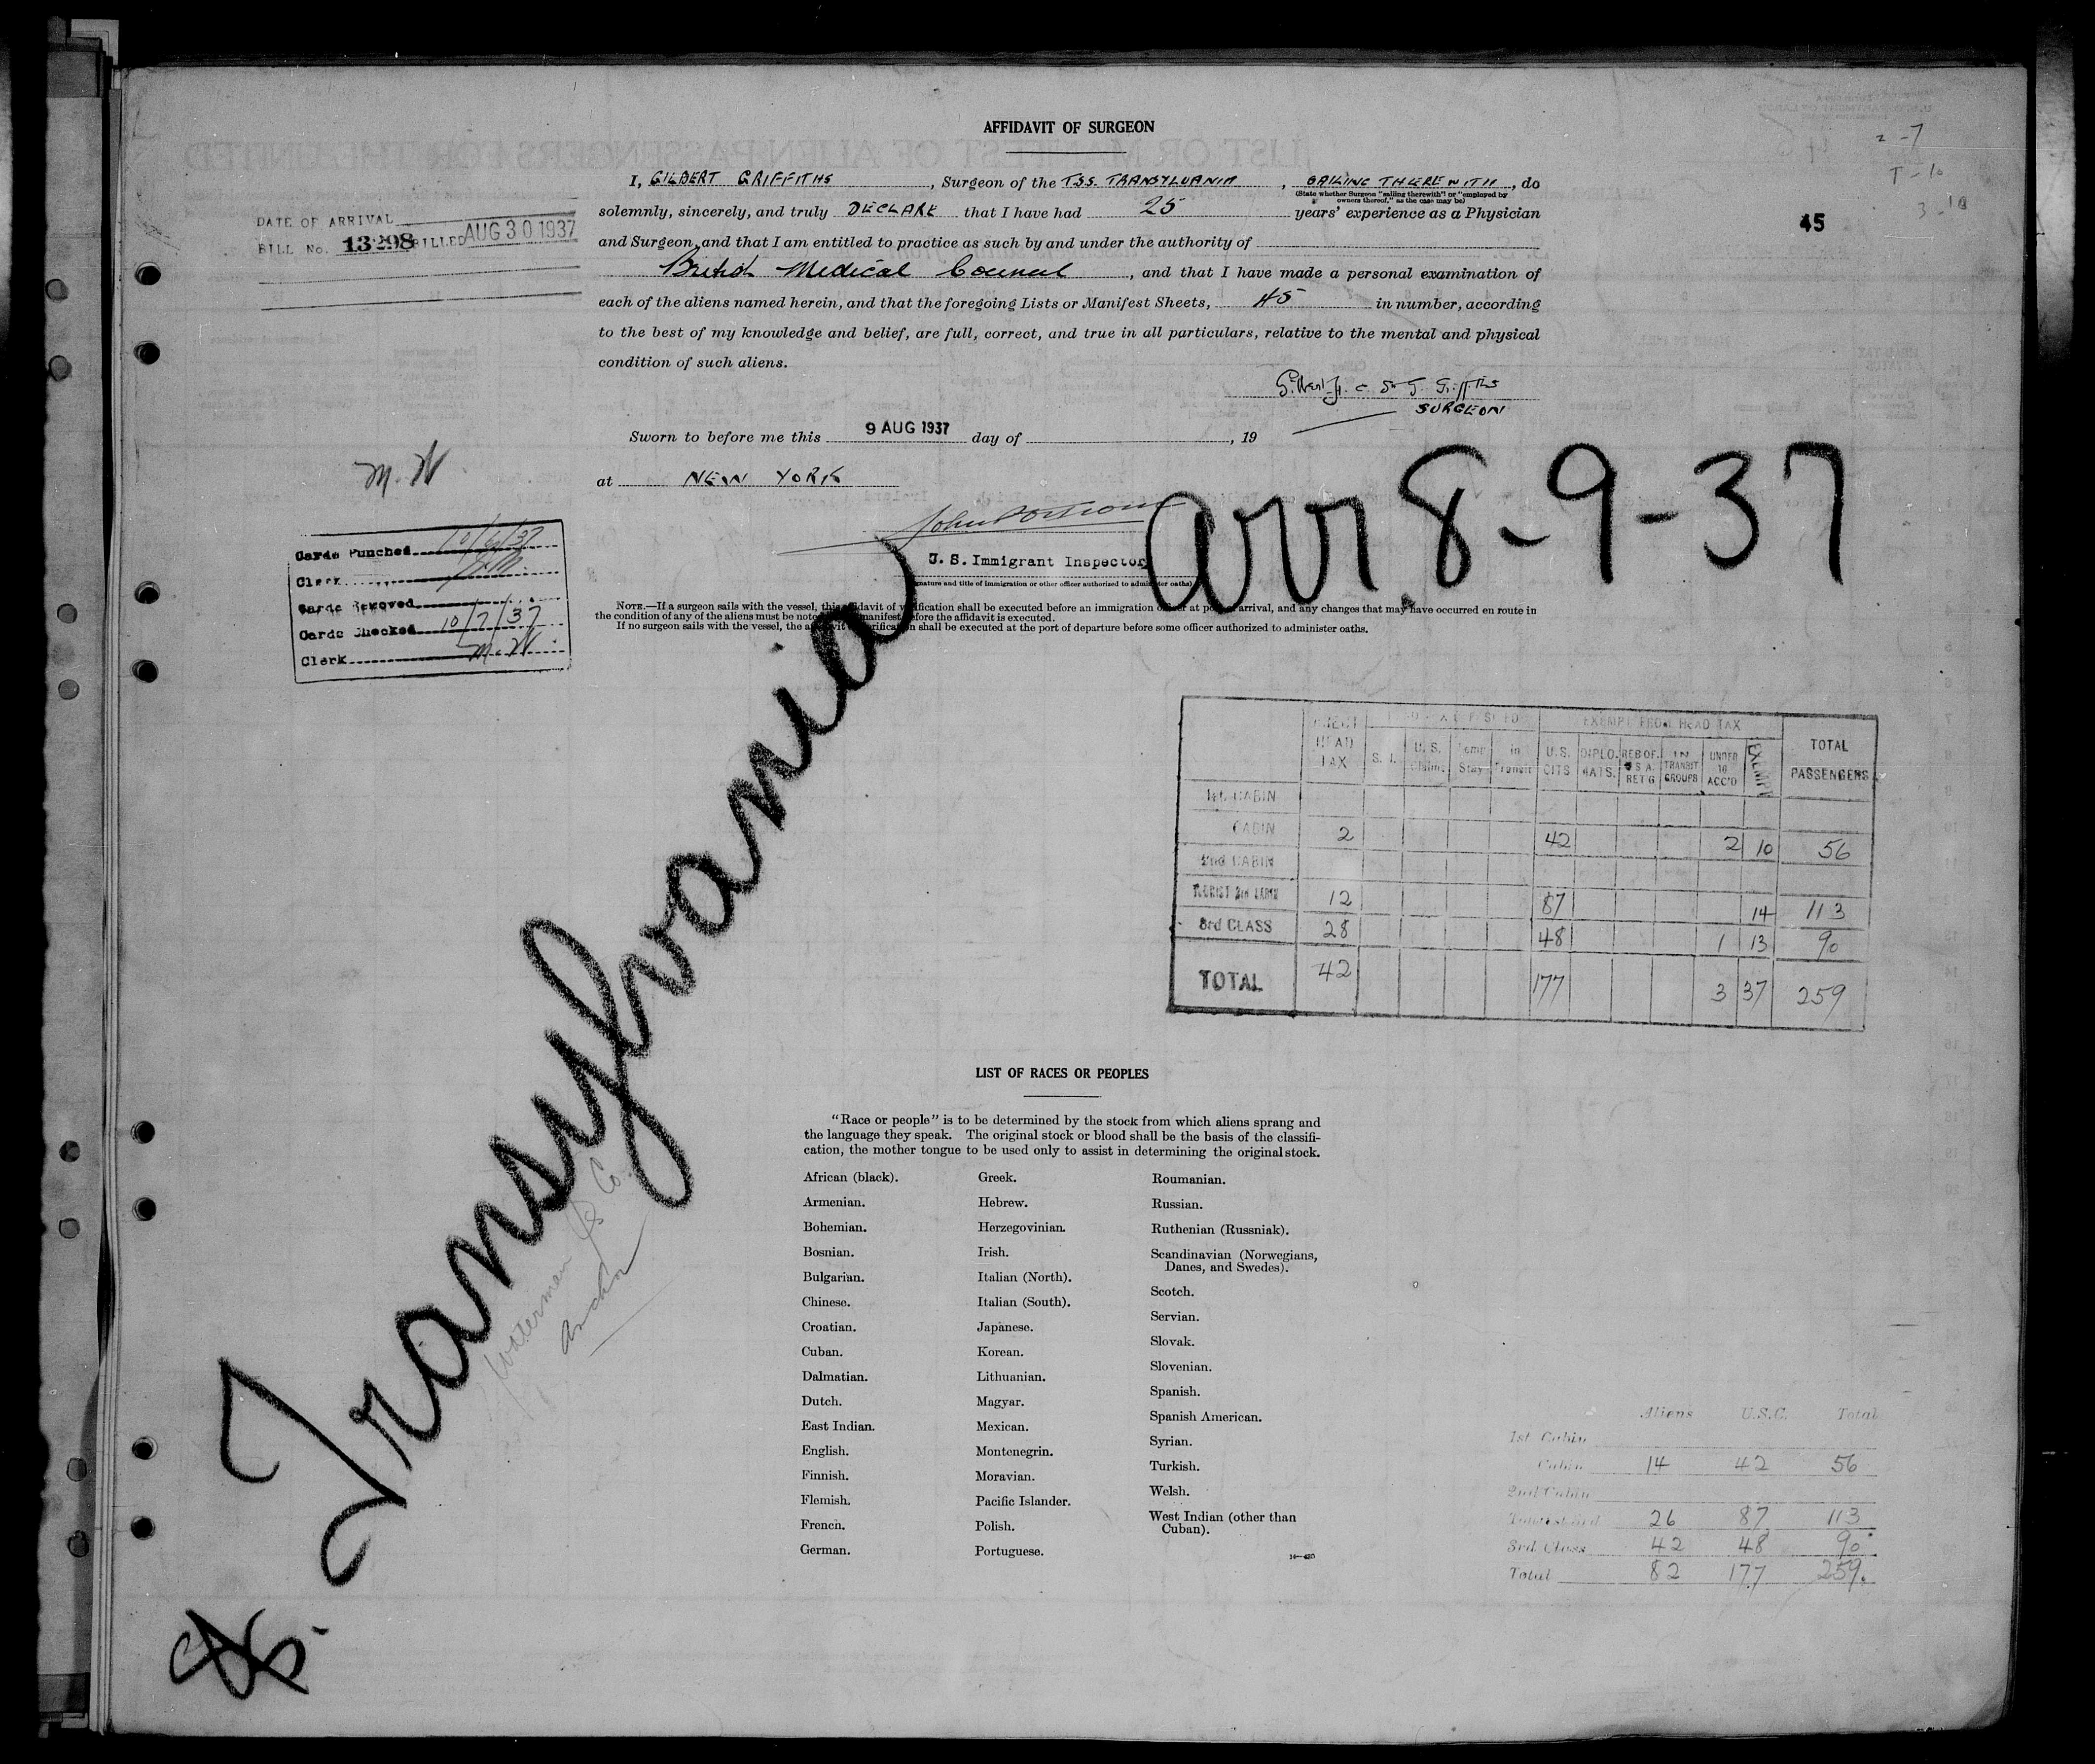 AFFIDAVIT OF SURGEON
2 - 7
T - 10
3 - 10
45
DATE OF ARRIVAL
BILL No. 13298 BILLED AUG 30 1937
I, GILBERT GRIFFITHS, Surgeon of the T.S.S. TRANSYLVANIA, SAILING THEREWITH, do
(State whether Surgeon "sailing therewith" or "employed by
owners thereof," as the case may be)
solemnly, sincerely, and truly DECLARE that I have had 25 years' experience as a Physician
and Surgeon, and that I am entitled to practice as such by and under the authority of
British Medical Council, and that I have made a personal examination of
each of the aliens named herein, and that the foregoing Lists or Manifest Sheets, 45 in number, according
to the best of my knowledge and belief, are full, correct, and true in all particulars, relative to the mental and physical
condition of such aliens.
Griffiths
SURGEON
Sworn to before me this 9 AUG 1937 day of , 19
at NEW YORK
M. W.
John
U. S. Immigrant Inspector
(Signature and title of immigration or other officer authorized to administer oaths)
arr. 8-9-37
Cards Punched 10/6/37
Clerk
Cards Removed
Cards Checked 10/7/37
Clerk M. W.
NOTE.—If a surgeon sails with the vessel, this affidavit of verification shall be executed before an immigration officer at port of arrival, and any changes that may have occurred en route in
the condition of any of the aliens must be noted on manifest before the affidavit is executed.
If no surgeon sails with the vessel, the affidavit of verification shall be executed at the port of departure before some officer authorized to administer oaths.
SS. Transylvania
Waterman SS Co.
Anchor
HEAD TAX EXEMPT FROM HEAD TAX TOTAL PASSENGERS
S. I. U. S. Claims Temp Stay In Transit U.S. CITS DIPLOMATS. RES OF U S A. RET'G IN TRANSIT GROUPS UNDER 16 ACC'D EXEMPT
1st CABIN
CABIN 2 42 2 10 56
2nd CABIN
TOURIST 3rd CABIN 12 87 14 113
3rd CLASS 28 48 1 13 90
TOTAL 42 177 3 37 259
LIST OF RACES OR PEOPLES
"Race or people" is to be determined by the stock from which aliens sprang and
the language they speak. The original stock or blood shall be the basis of the classifi-
cation, the mother tongue to be used only to assist in determining the original stock.
African (black).
Armenian.
Bohemian.
Bosnian.
Bulgarian.
Chinese.
Croatian.
Cuban.
Dalmatian.
Dutch.
East Indian.
English.
Finnish.
Flemish.
French.
German.
Greek.
Hebrew.
Herzegovinian.
Irish.
Italian (North).
Italian (South).
Japanese.
Korean.
Lithuanian.
Magyar.
Mexican.
Montenegrin.
Moravian.
Pacific Islander.
Polish.
Portuguese.
Roumanian.
Russian.
Ruthenian (Russniak).
Scandinavian (Norwegians,
Danes, and Swedes).
Scotch.
Servian.
Slovak.
Slovenian.
Spanish.
Spanish American.
Syrian.
Turkish.
Welsh.
West Indian (other than
Cuban).
Aliens U.S.C. Total
1st Cabin
Cabin 14 42 56
2nd Cabin
26 87 113
3rd Class 42 48 90
Total 82 177 259.